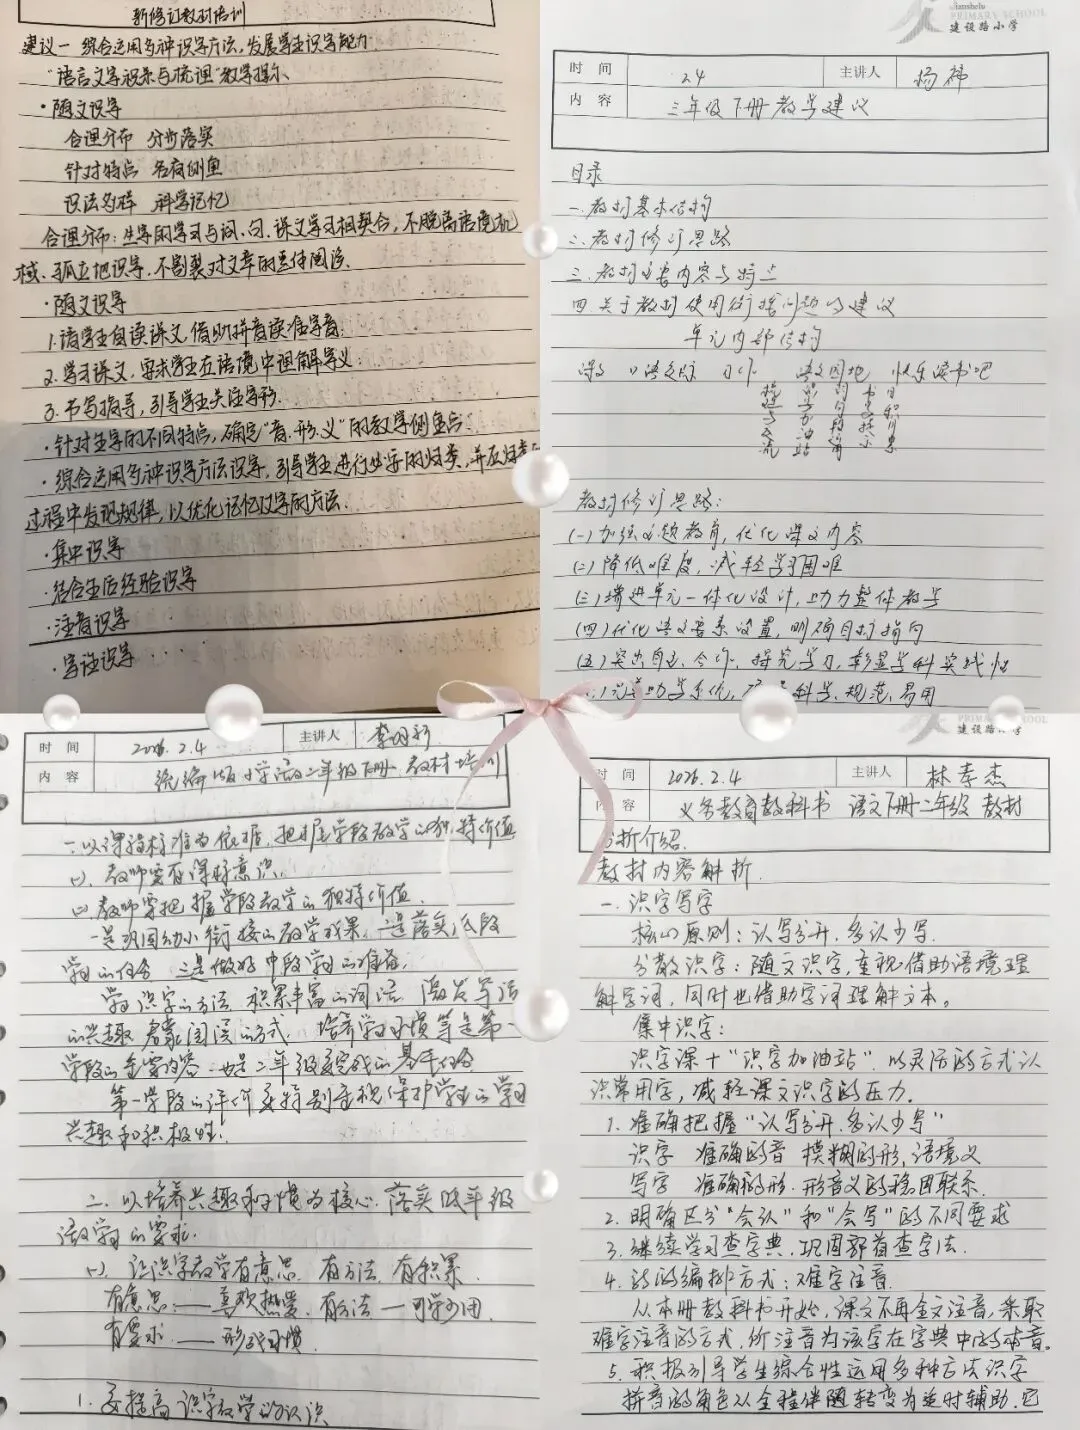 新修订教材培训
建议一 综合运用多种识字方法,发展学生识字能力
"语言文字积累与梳理"教学提示
·随文识字
合理分布 分步落实
针对特点 各有侧重
识法多样 科学记忆
合理分布:生字的学习与词、句、课文学习相契合,不脱离语境机
械、孤立地识字,不割裂对文章的整体阅读。
·随文识字
1.请学生自读课文,借助拼音读准字音.
2.学习课文,要求学生在语境中理解字义.
3.书写指导,引导学生关注字形.
·针对生字的不同特点,确定"音.形.义"的教学侧重点.
·综合运用多种识字方法识字,引导学生进行生字的归类,并在归类
过程中发现规律,以优化记忆汉字的方法.
·集中识字
·结合生活经验识字
·注音识字
·字谜识字 ...
Jianshelu
PRIMARY SCHOOL
建设路小学
时 间 24 主讲人 杨祎
内 容 三年级下册教学建议
目录
一.教材基本结构
二.教材修订思路
三.教材主要内容与特点
四 关于教材使用衔接问题的建议
单元内部结构
课文 口语交际 习作 语文园地 快乐读书吧
交流
识字加油站
词句段
日积月累
教材修订思路:
(一)加强主题教育,优化课文内容
(二)降低难度,减轻学习困难
(三)增进单元一体化设计,助力整体教学
(四)优化语文要素设置,明确目标指向
(五)突出自主、合作、探究学习,彰显学科实践性
助学系统, 科学、规范、易用
时 间 2026.2.4 主讲人
内 容 统编版小学语文二年级下册.教材培训
一.以课程标准为依据,把握学段教学的独特价值
(一).教师要有课标意识.
(二).教师要把握学段教学的独特价值.
一是巩固幼小衔接的教学成果,二是落实低段
学习的任务 三是做好中段学习的准备.
学习识字的方法 积累丰富的词语 激发写话
的兴趣 启蒙阅读的方式 培养学习习惯等是第一
学段的重要内容.也是二年级要完成的基本任务
第一学段的评价要特别重视保护学生的学习
兴趣和积极性!
二.以培养兴趣和习惯为核心.落实低年级
语文学习的要求.
(一).让识字教学有意思.有方法.有积累.
有意思:——喜欢热爱.有方法——可学习用
有要求.——形成习惯
1.要提高识字教学的认识
PRIMARY SCHOOL
建设路小学
时 间 2026.2.4 主讲人 林孝杰
内 容 义务教育教科书 语文下册二年级 教材
分析介绍.
教材内容解析.
一.识字写字
核心原则:认写分开.多认少写.
分散识字:随文识字,重视借助语境理
解字词,同时也借助字词理解文本。
集中识字:
识字课+"识字加油站" 以灵活的方式认
识常用字,减轻课文识字的压力.
1.准确把握"认写分开.多认少写"
识字 准确的音 模糊的形,语境义
写字 准确的形.形音义的稳固联系.
2.明确区分"会认"和"会写"的不同要求
3.继续学习查字典.巩固部首查字法.
4.新的编排方式:难字注音.
从本册教科书开始.课文不再全文注音,采取
难字注音的方式.所注音为该字在字典中的本音。
5.积极引导学生综合性运用多种方法识字
拼音的角色从全程伴随转变为适时辅助.它